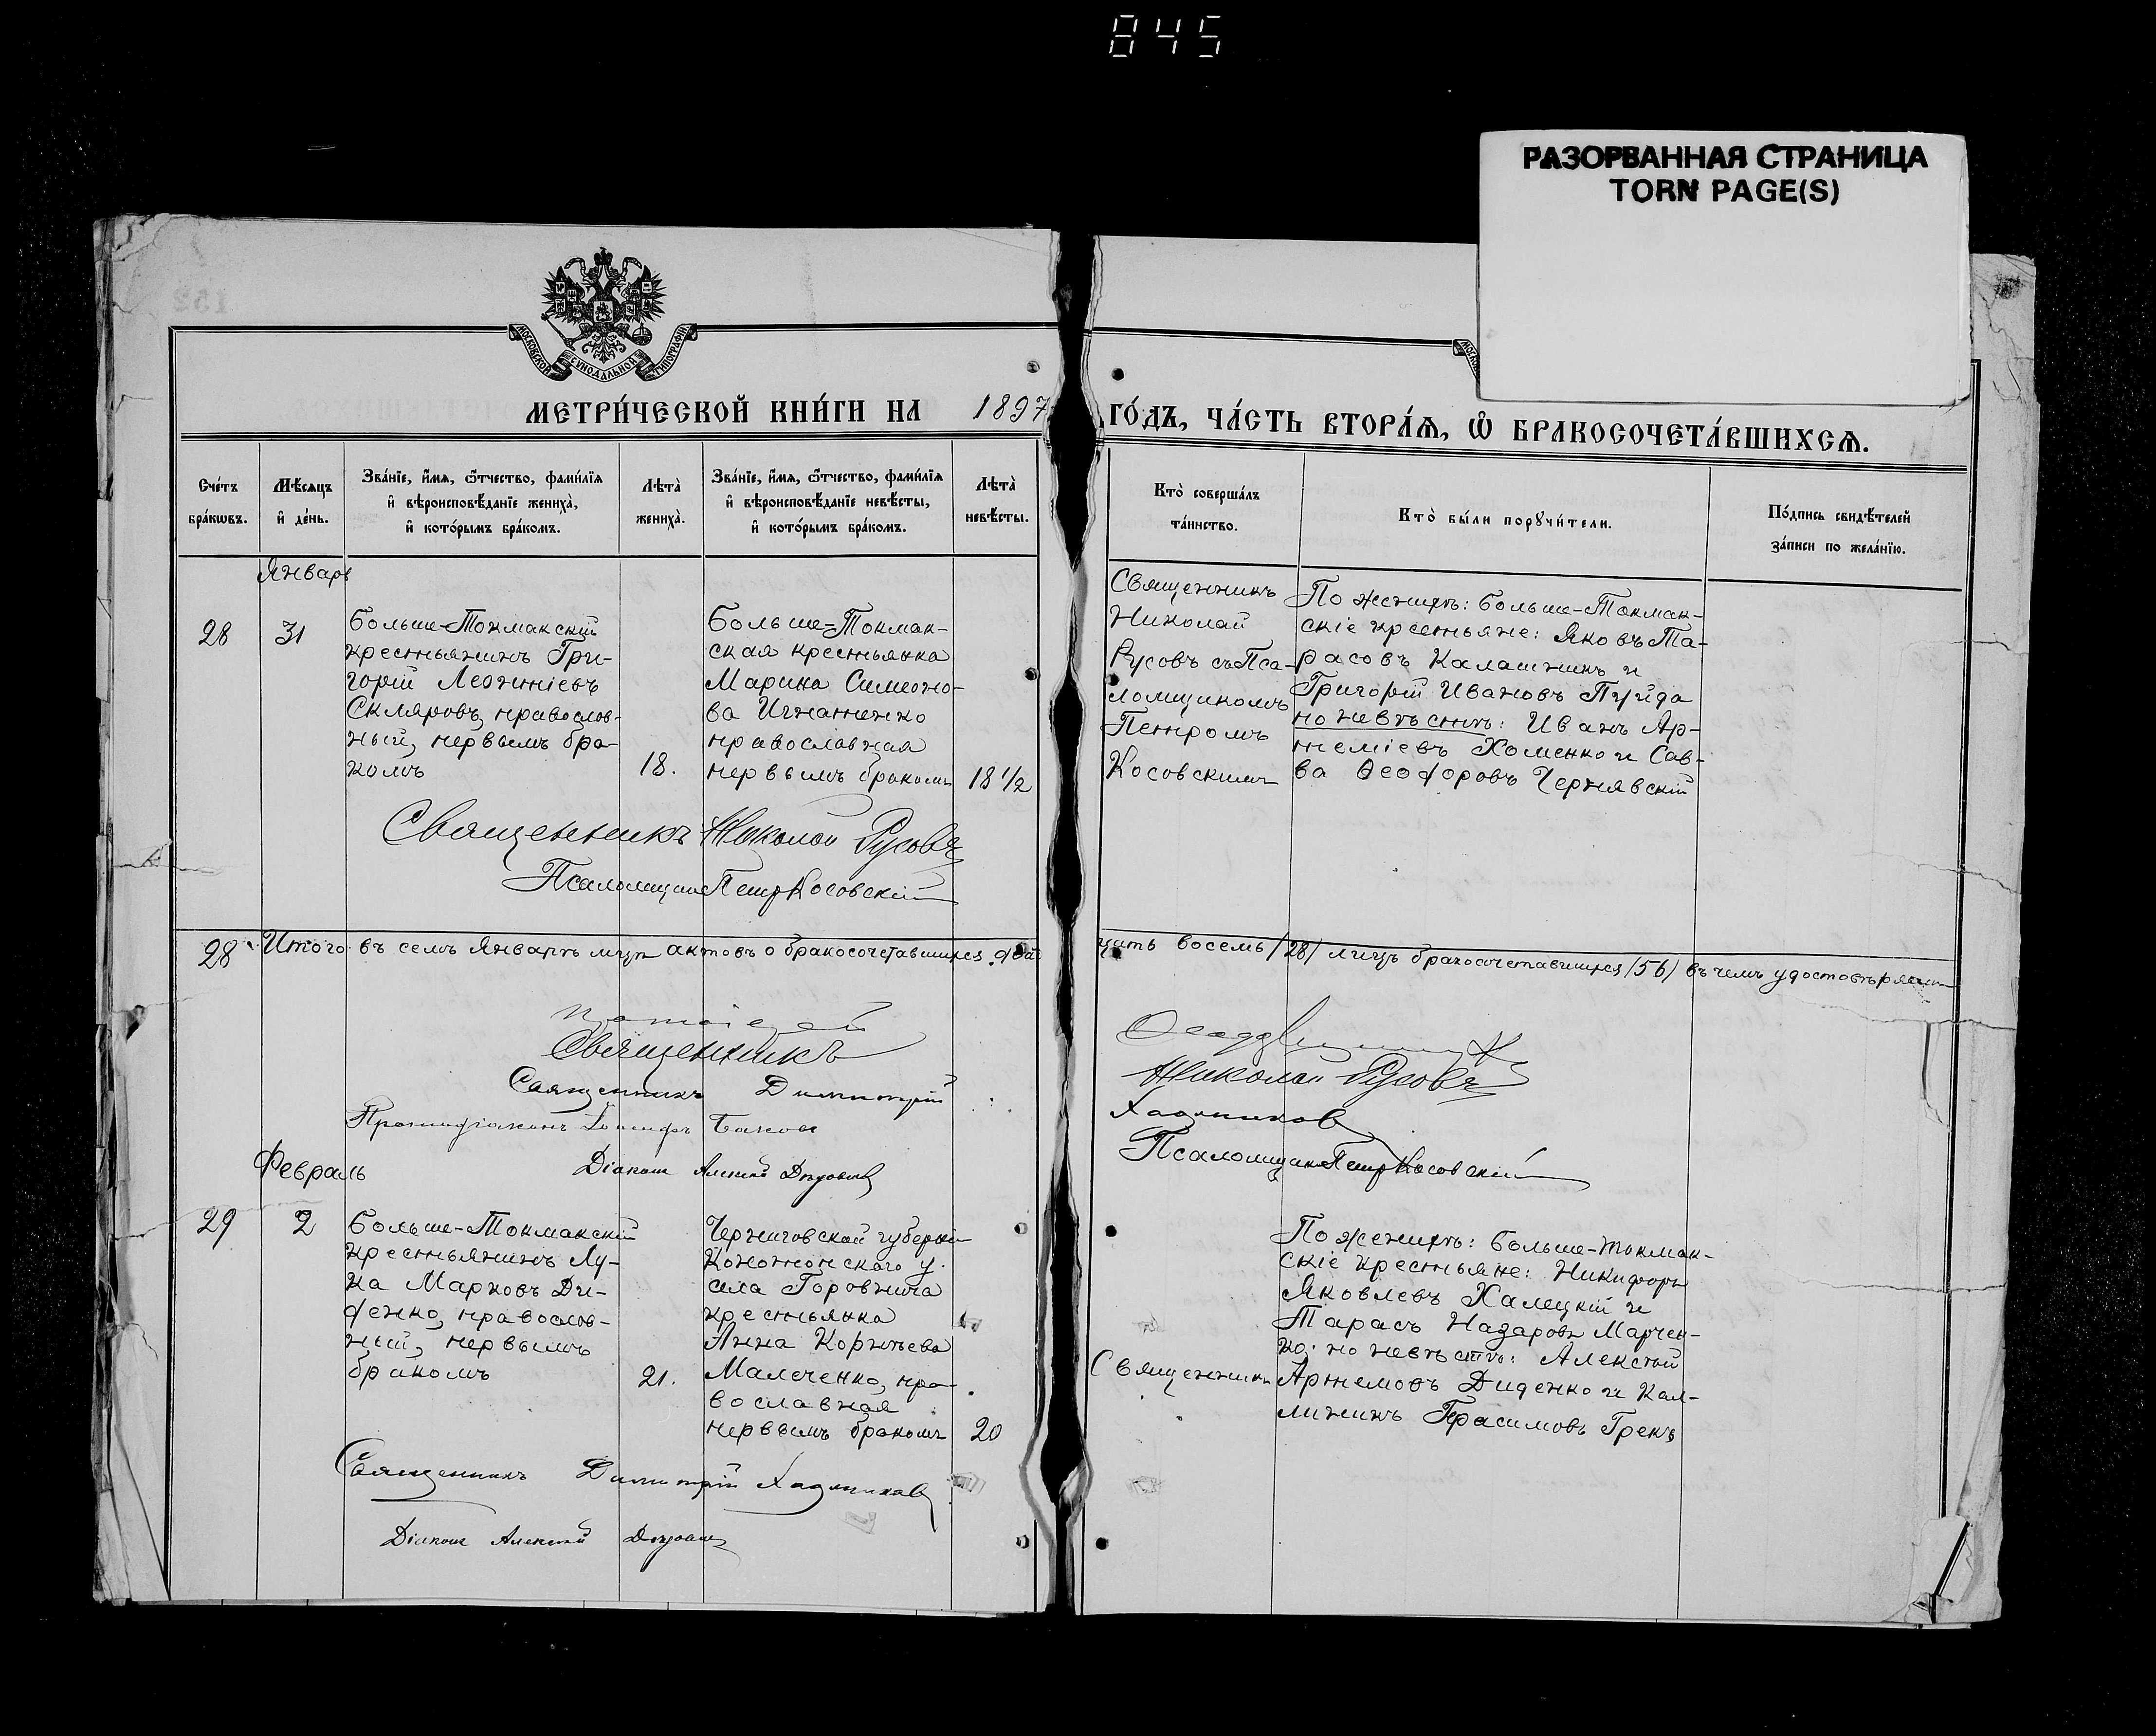 845
РАЗОРВАННАЯ СТРАНИЦА
TORN PAGE(S)
МОСКОВСКОЙ СѴНОДАЛЬНОЙ ТИПОГРАФІИ
МЕТРИ́ЧЕСКОЙ КНИ́ГИ НА 1897
ГО́ДЪ, ЧА́СТЬ ВТОРА́Ѧ, Ѡ҆ БРАКОСОЧЕТА́ВШИХСѦ.
Сче́тъ
бра́кѡвъ.
Мѣ́сяцъ
и҆ де́нь.
Зва́нїе, и҆́мѧ, ѻ҆́тчество, фами́лїѧ
и҆ вѣроисповѣ́данїе жениха̀,
и҆ кото́рымъ бра́комъ.
Лѣта̀
жениха̀.
Зва́нїе, и҆́мѧ, ѻ҆́тчество, фами́лїѧ
и҆ вѣроисповѣ́данїе невѣ́сты,
и҆ кото́рымъ бра́комъ.
Лѣта̀
невѣ́сты.
Кто̀ соверша́лъ
та́инство.
Кто̀ бы́ли порꙋчи́тели.
По́дпись свидѣ́телей
за́писи по жела́нїю.
Январь
28
31
Больше-Токмакскій
крестьянинъ Гри-
горій Леонтіевъ
Скляровъ, православ-
ный, первымъ бра-
комъ
18.
Больше-Токмак-
ская крестьянка
Марина Симеоно-
ва Игнатенко
православная
первымъ бракомъ
18 1/2
Священникъ
Николай
Русовъ съ Пса-
ломщикомъ
Петромъ
Косовскимъ
По женихѣ: Больше-Токмак-
скіе крестьяне: Яковъ Та-
расовъ Калашникъ и
Григорій Ивановъ Пуйда
по невѣстѣ: Иванъ Ар-
теміевъ Хоменко и Сав-
ва Ѳеодоровъ Чернявскій
Священникъ Николай Русовъ
Псаломщикъ Петръ Косовскій
28
Итого въ семъ Январѣ мцѣ актовъ о бракосочетавшихся двад
цать восемь /28/ лицъ бракосочетавшихся /56/ въ чемъ удостовѣряемъ
Священникъ
Николай Русовъ
Священникъ Димитрій
Хаджиновъ
Протодіаконъ
Діаконъ Алексѣй
Псаломщикъ Петръ Косовскій
Февраль
29
2
Больше-Токмакскій
крестьянинъ Лу-
ка Марковъ Ди-
денко, православ-
ный, первымъ
бракомъ
21.
Черниговской губерніи
Конотопскаго у.
села
крестьянка
Анна Корнѣева
Малеченко, пра-
вославная
первымъ бракомъ
20
Священникъ
По женихѣ: Больше-Токмак-
скіе крестьяне: Никифоръ
Яковлевъ Халецкій и
Тарасъ Назаровъ Марчен-
ко; по невѣстѣ: Алексѣй
Артемовъ Диденко и Кал-
линикъ Герасимовъ Грекъ
Священникъ Димитрій Хаджиновъ
Діаконъ Алексѣй